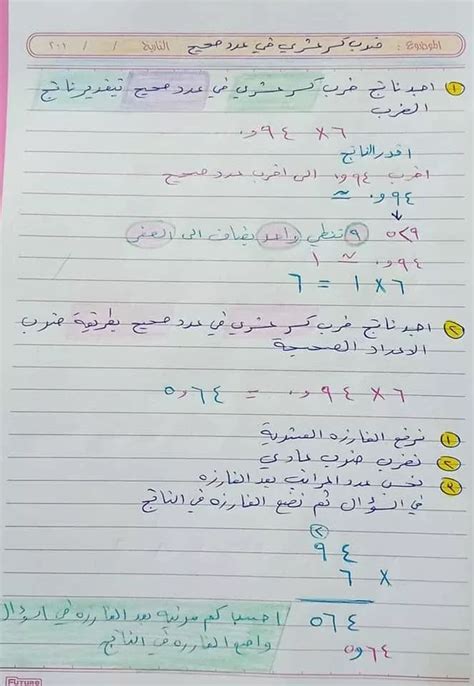 الموضوع : ضرب كسر عشري في عدد صحيح التاريخ / / ٢٠١
① اجد ناتج ضرب كسر عشري في عدد صحيح بتقدير ناتج
الضرب
٦ × ٩٤و٠
اقدر الناتج
اقرب ٩٤و٠ الى اقرب عدد صحيح
٩٤و٠ ≃
٩ > ٥
٩ تعطي واحد يضاف الى الصفر
٩٤و٠ ≃ ١
٦ × ١ = ٦
② اجد ناتج ضرب كسر عشري في عدد صحيح بطريقة ضرب
الاعداد الصحيحة
٦ × ٩٤و٠ = ٦٤و٥
① نرفع الفارزه العشرية
② نضرب ضرب عادي
③ نحسب عدد المراتب بعد الفارزه
في السؤال ثم نضع الفارزه في الناتج
٢
٩٤
٦ ×
٥٦٤
٦٤و٥
احسب كم مرتبه بعد الفارزه في السؤال
واضع الفارزه في الناتج
FUTURE